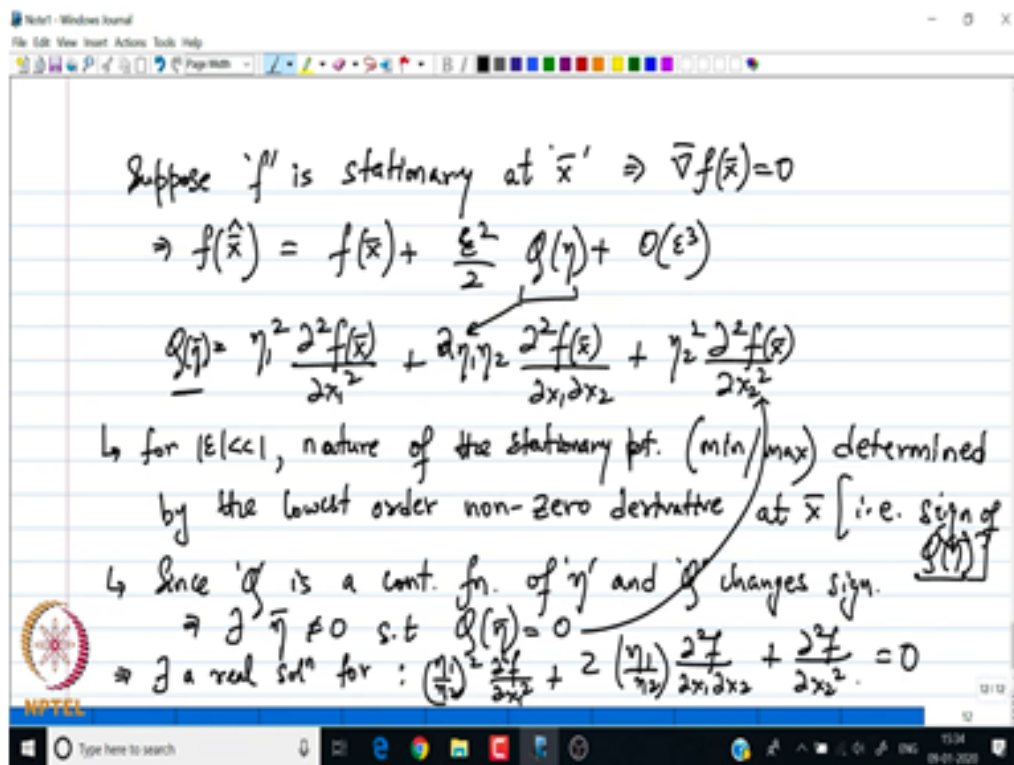 Note1 - Windows Journal
File Edit View Insert Actions Tools Help
Page Width
B I
Suppose 'f' is stationary at 'x̄' ⇒ ∇̄f(x̄)=0
⇒ f(x̄̂) = f(x̄) + ε²/2 Q(η) + O(ε³)
Q(η̄) = η₁² ∂²f(x̄)/∂x₁² + 2η₁η₂ ∂²f(x̄)/∂x₁∂x₂ + η₂² ∂²f(x̄)/∂x₂²
↳ for |ε|<<1, nature of the stationary pt. (min/max) determined
by the lowest order non-zero derivative at x̄ [i.e. sign of
Q(η)]
↳ Since 'Q' is a cont. fn. of 'η' and 'Q' changes sign.
⇒ ∃ η̄ ≠ 0 s.t Q(η̄) = 0
⇒ ∃ a real solⁿ for : (η₁/η₂)² ∂²f/∂x₁² + 2 (η₁/η₂) ∂²f/∂x₁∂x₂ + ∂²f/∂x₂² = 0
NPTEL
12/12
12
Type here to search
ENG
15:34
09-01-2020